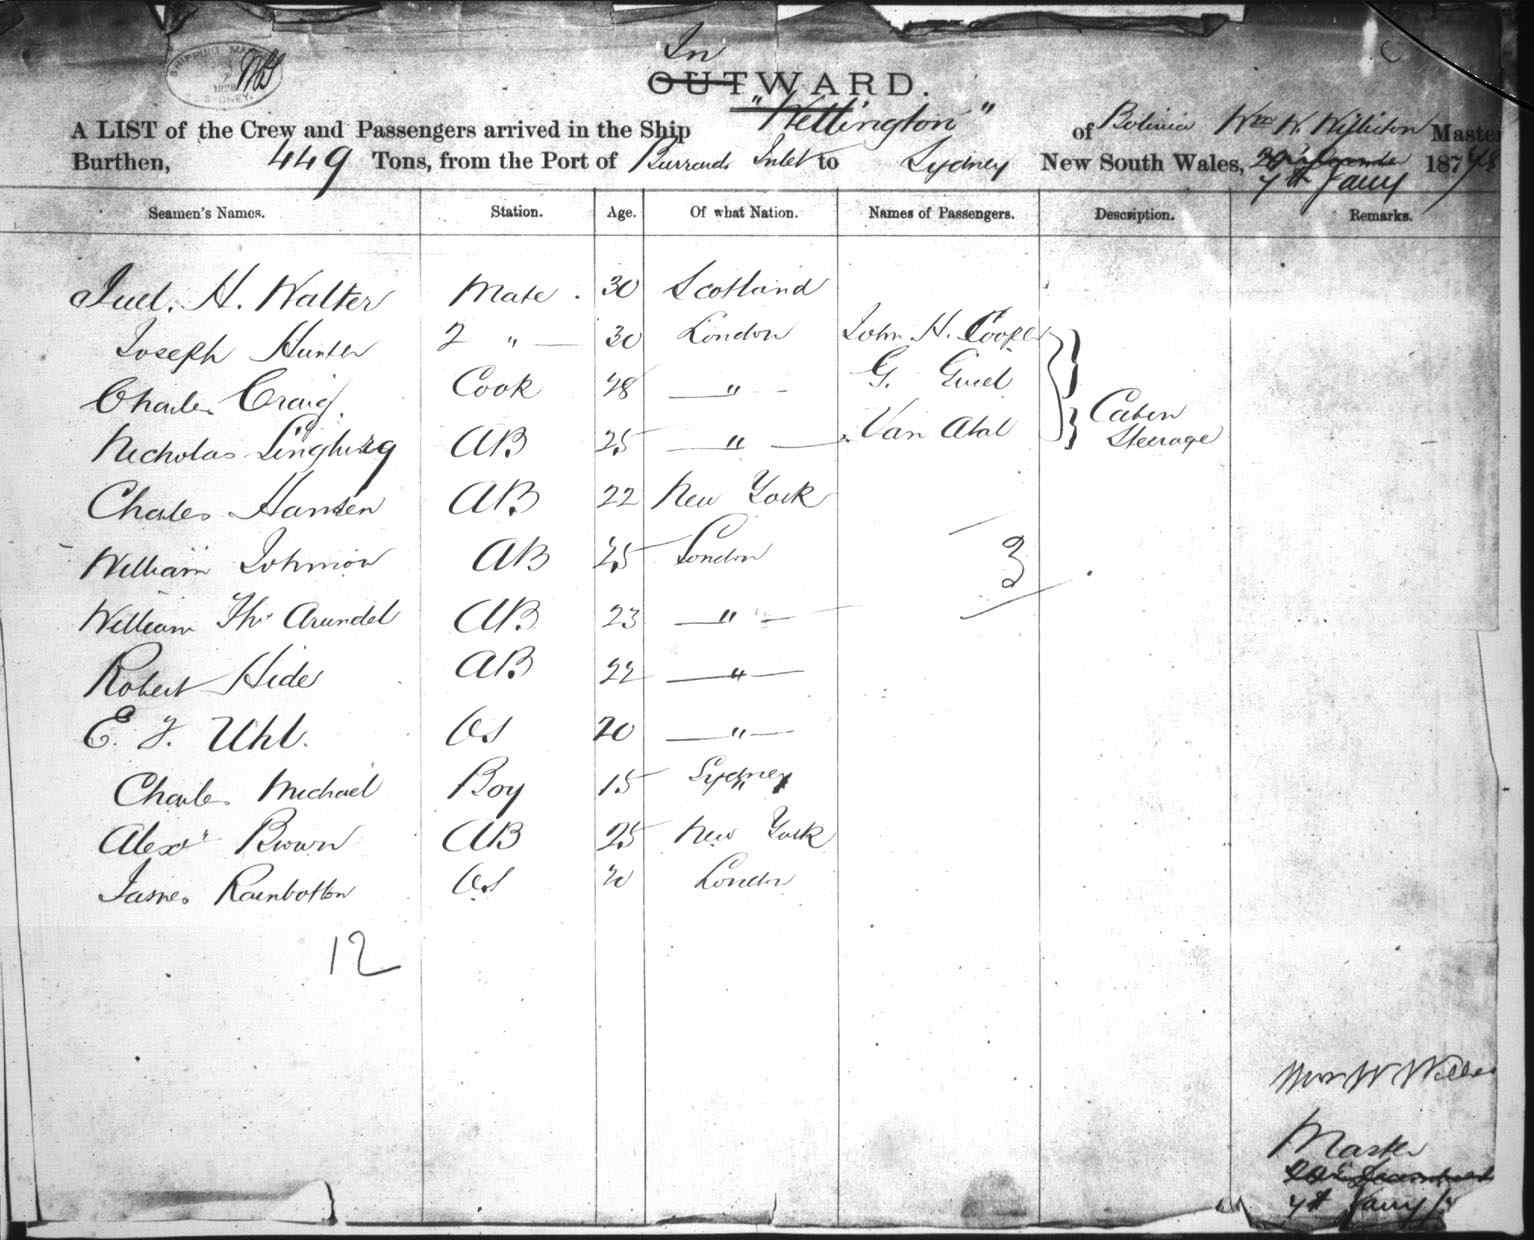 In
OUTWARD.
A LIST of the Crew and Passengers arrived in the Ship "Wellington" of Bolivia Wm W. Williston Master
Burthen, 449 Tons, from the Port of Burrards Inlet to Sydney New South Wales, 7th Jany 187
Seamen's Names. Station. Age. Of what Nation. Names of Passengers. Description. Remarks.
H. Walter Mate 30 Scotland
Joseph Hunter 2 " 30 London John H. Cooper
Charles Craig Cook 28 " G. Guiel Cabin
Nicholas AB 25 " Van Steerage
Charles Hansen AB 22 New York
William Johnson AB 25 London 3
William Ths Arundel AB 23 "
Robert Hide AB 22 "
E. J. Uhl. OS 20 "
Charles Michael Boy 15 Sydney
Alexr Brown AB 25 New York
James Rambotton OS 20 London
12
Wm W Willis
Master
7th Jany